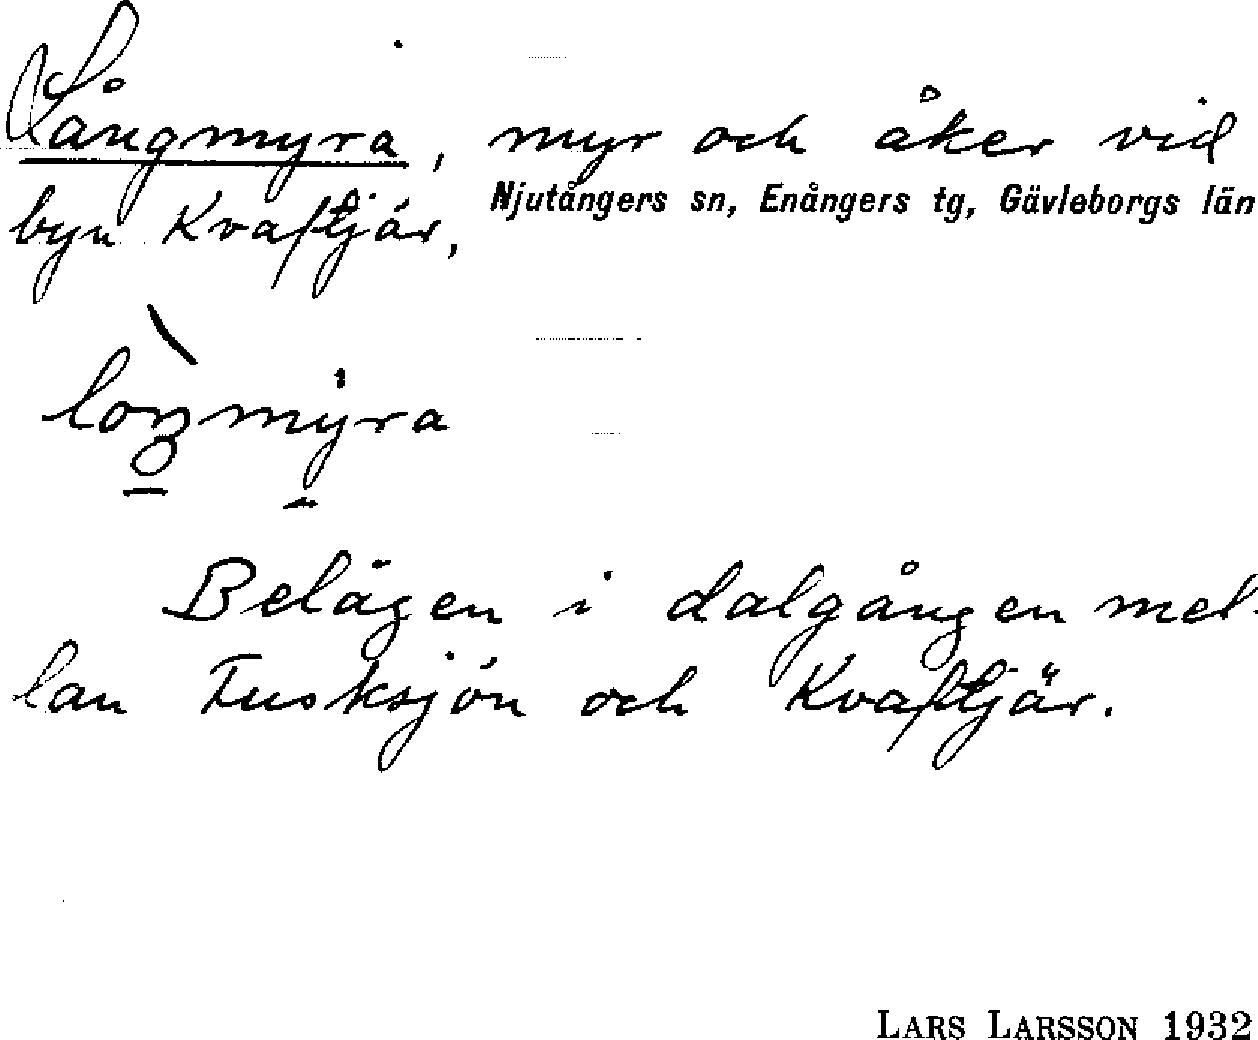 Långmyra, myr och åker vid
Njutångers sn, Enångers tg, Gävleborgs län
byn Kvaftjär,
Belägen i dalgången mel-
lan Tusksjön och Kvaftjär.
LARS LARSSON 1932